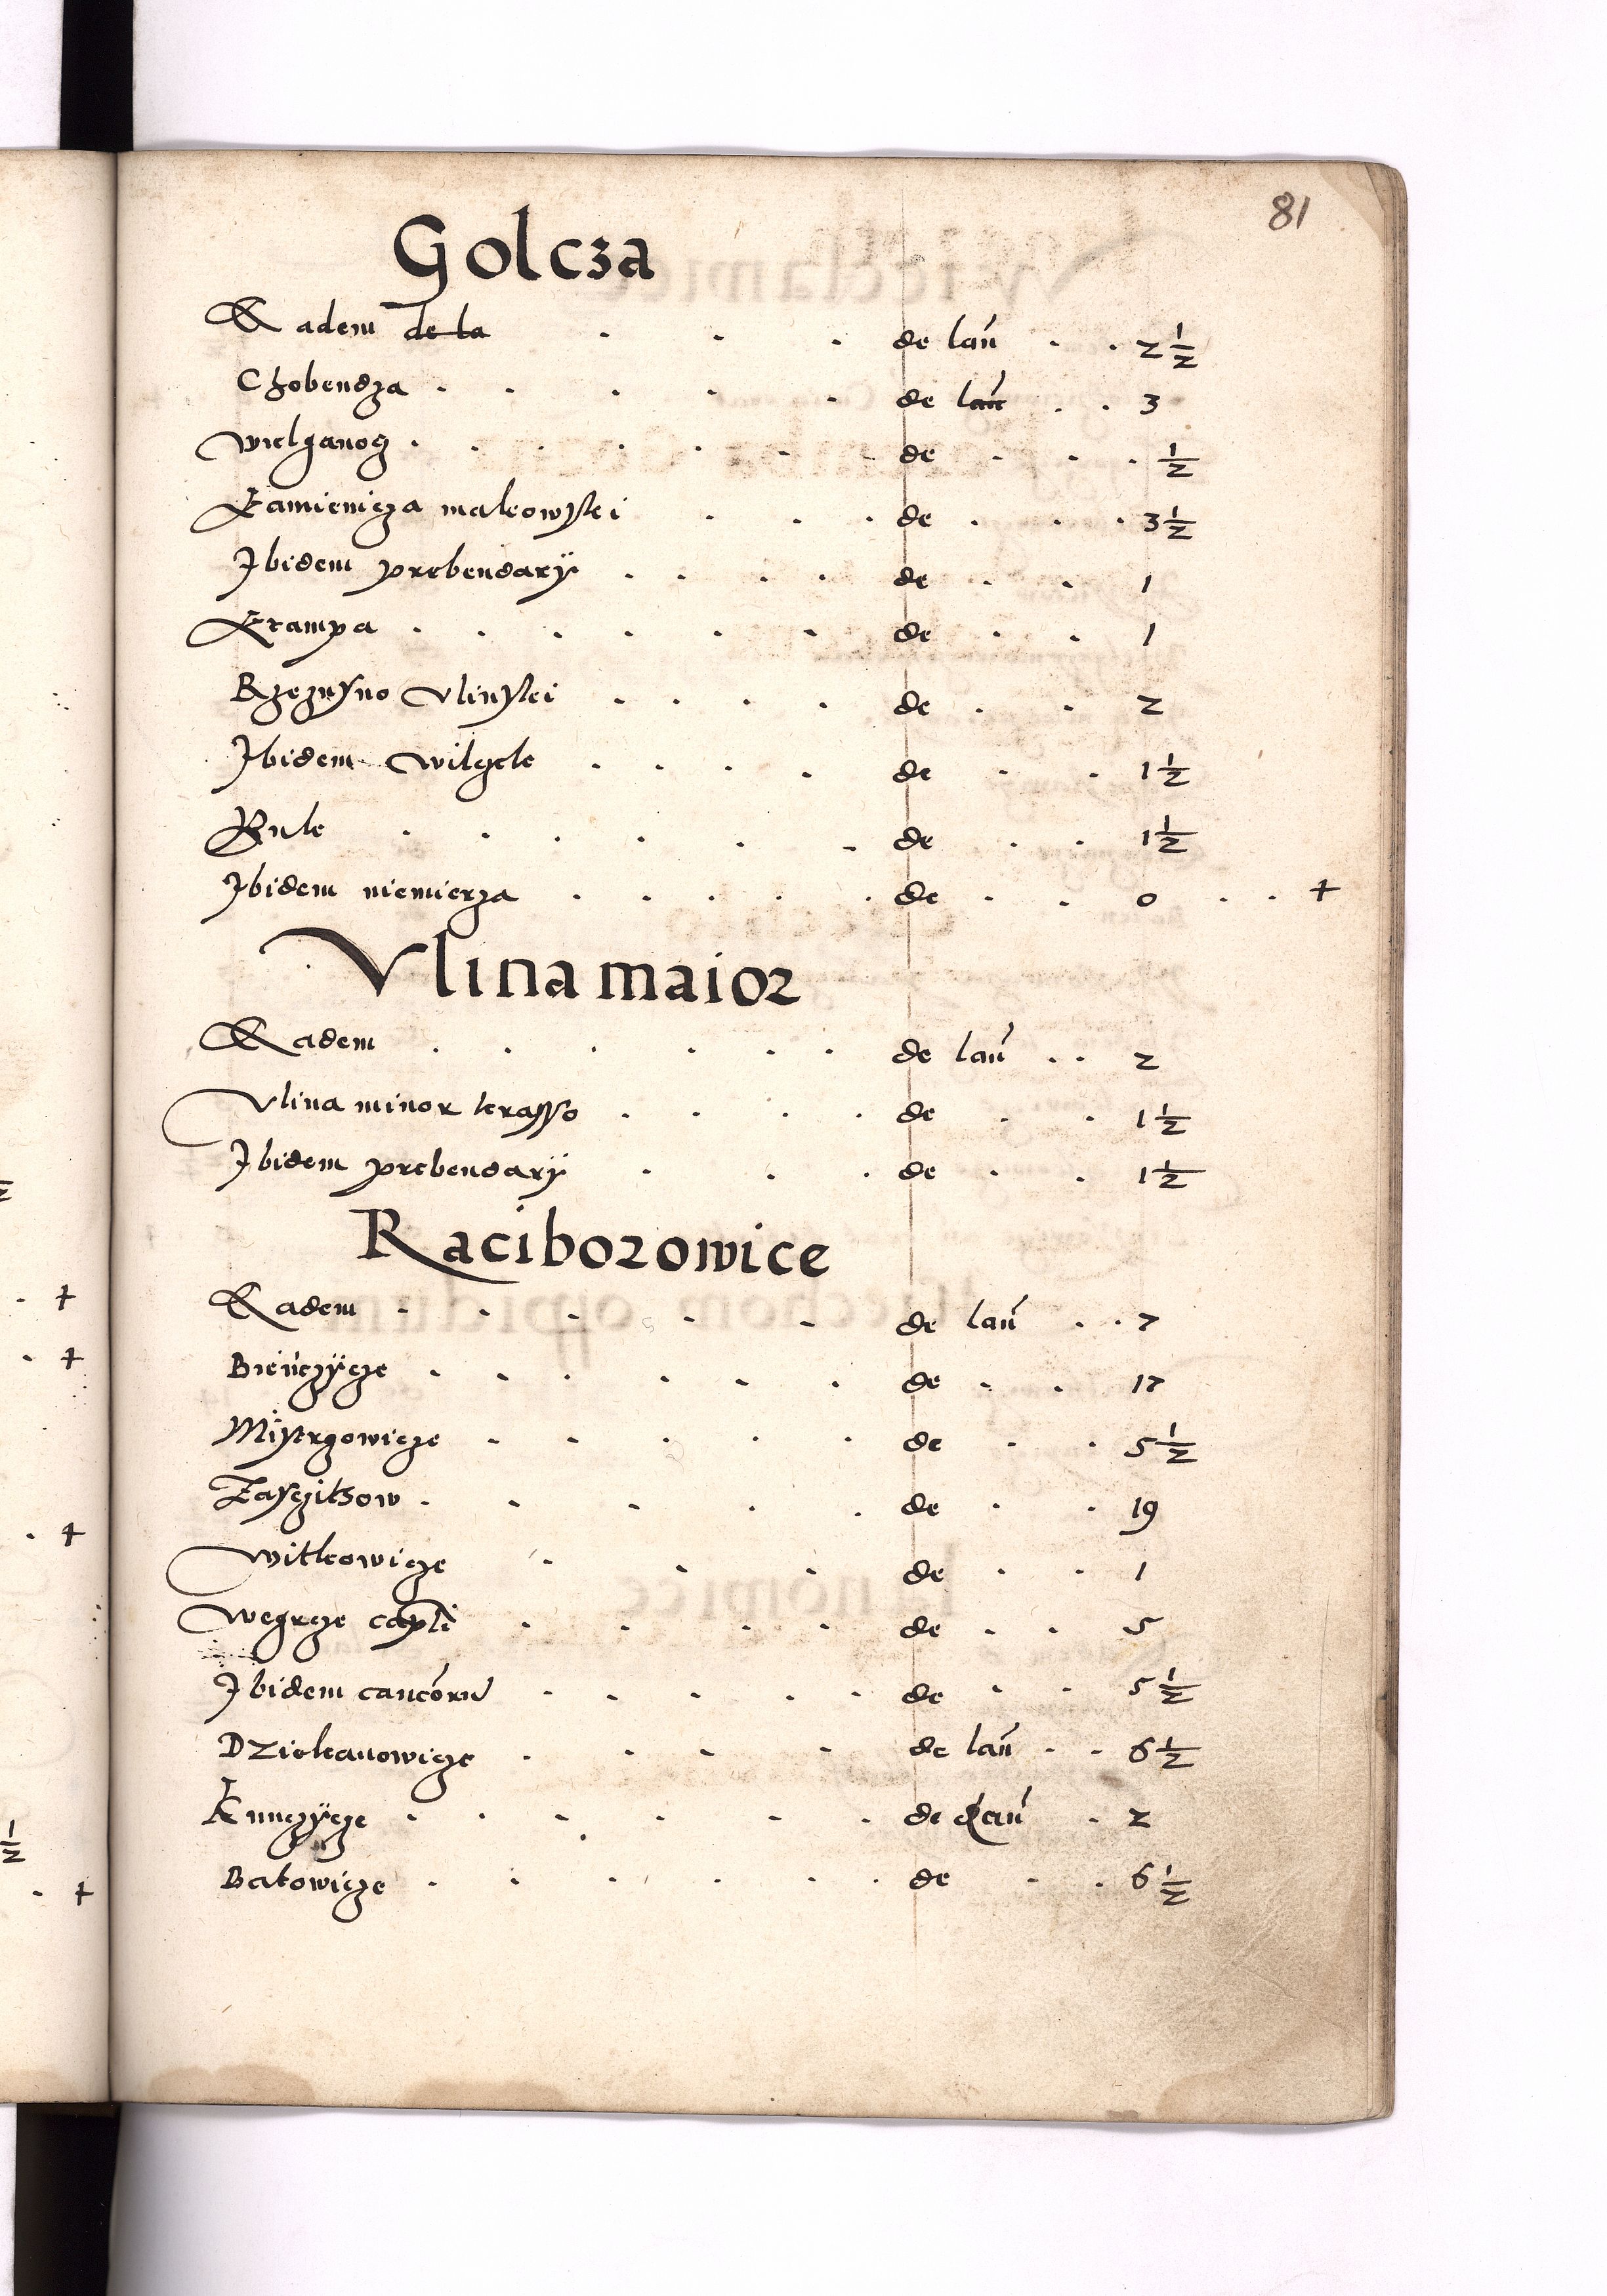 81
Golcza
Eadem de la . . . de lan̄ . . 2 1/2
Chobendza . . . . . de lan̄ . . 3
Wielganog . . . . . . . de . . . 1/2
Kamienicza malkowskei . . . de . . . 3 1/2
Ibidem prebendarÿ . . . . de . . 1
Krampa . . . . . . de . . 1
Rzezusno Vlinskei . . . . de . . 2
Ibidem Wilgele . . . . de . . 1 1/2
. . . . . . de . . 1 1/2
Ibidem niemierza . . . . . de . . 0 . . +
Vlina maior
Eadem . . . . . . de lan̄ . . 2
Vlina minor krasso . . . . de . . 1 1/2
Ibidem prebendarÿ . . . de . . 1 1/2
Raciborowice
Eadem . . . . . de lan̄ . . 7
Bieńczÿcze . . . . . . de . . 17
Mistrzowicze . . . . . de . . 5 1/2
Zasczitow . . . . . de . . 19
Witkowicze . . . de . . 1
Wegrze capli . . . . de . . 5
Ibidem canco͞ru . . . . . de . . 5 1/2
Dziekanowicze . . . . de lan̄ . . 6 1/2
Kunczÿcze . . . . . . de lan̄ . 2
Batowicze . . . . . . de . . 6 1/2